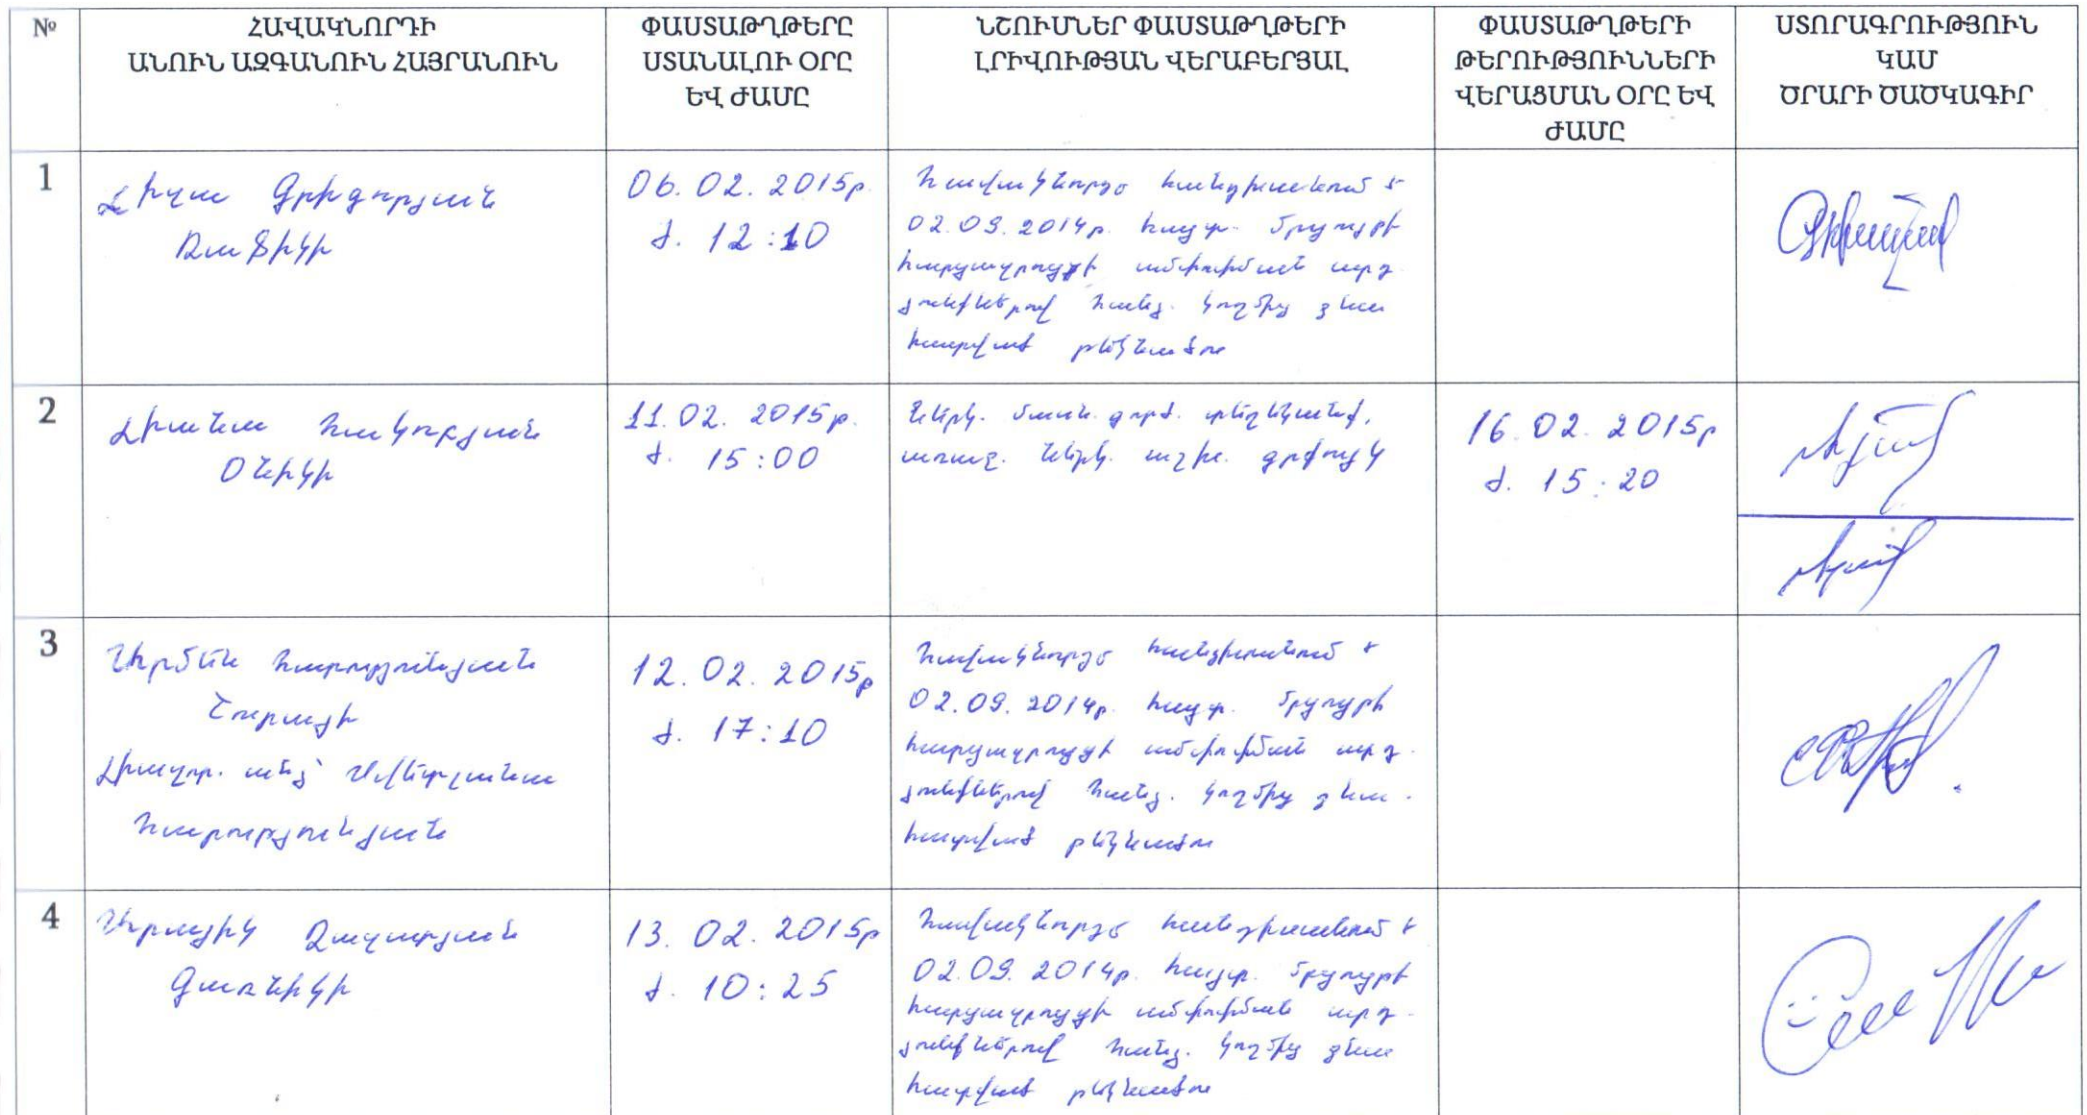 №
ՀԱՎԱԿՆՈՐԴԻ
ԱՆՈՒՆ ԱԶԳԱՆՈՒՆ ՀԱՅՐԱՆՈՒՆ
ՓԱՍՏԱԹՂԹԵՐԸ
ՍՏԱՆԱԼՈՒ ՕՐԸ
ԵՎ ԺԱՄԸ
ՆՇՈՒՄՆԵՐ ՓԱՍՏԱԹՂԹԵՐԻ
ԼՐԻՎՈՒԹՅԱՆ ՎԵՐԱԲԵՐՅԱԼ
ՓԱՍՏԱԹՂԹԵՐԻ
ԹԵՐՈՒԹՅՈՒՆՆԵՐԻ
ՎԵՐԱՑՄԱՆ ՕՐԸ ԵՎ
ԺԱՄԸ
ՍՏՈՐԱԳՐՈՒԹՅՈՒՆ
ԿԱՄ
ԾՐԱՐԻ ԾԱԾԿԱԳԻՐ
1
Լիլյա Գրիգորյան
Ռաֆիկի
06.02.2015թ.
ժ. 12:10
Հավակնորդը հանդիսանում է
02.09.2014թ. հայտ. մրցույթի
հարցազրույցի ամփոփման արդ
յունքներով հանձ. կողմից գնա
հատված բեկնածու
2
Լիանա Հակոբյան
Օնիկի
11.02.2015թ.
ժ. 15:00
Ներկ. մասն. գործ. տեղեկանք,
առաջ. ներկ. աշխ. գրքույկ
16.02.2015թ
ժ. 15:20
3
Արմեն Հարությունյան
Շուրայի
Լիազոր. անձ՝ Սվետլանա
Հարությունյան
12.02.2015թ
ժ. 17:10
Հավակնորդը հանդիսանում է
02.09.2014թ. հայտ. մրցույթի
հարցազրույցի ամփոփման արդ.
յունքներով հանձ. կողմից գնա.
հատված բեկնածու
4
Արայիկ Ղազարյան
Գառնիկի
13.02.2015թ
ժ. 10:25
Հավակնորդը հանդիսանում է
02.09.2014թ. հայտ. մրցույթի
հարցազրույցի ամփոփման արդ-
յունքներով հանձ. կողմից գնա
հատված բեկնածու